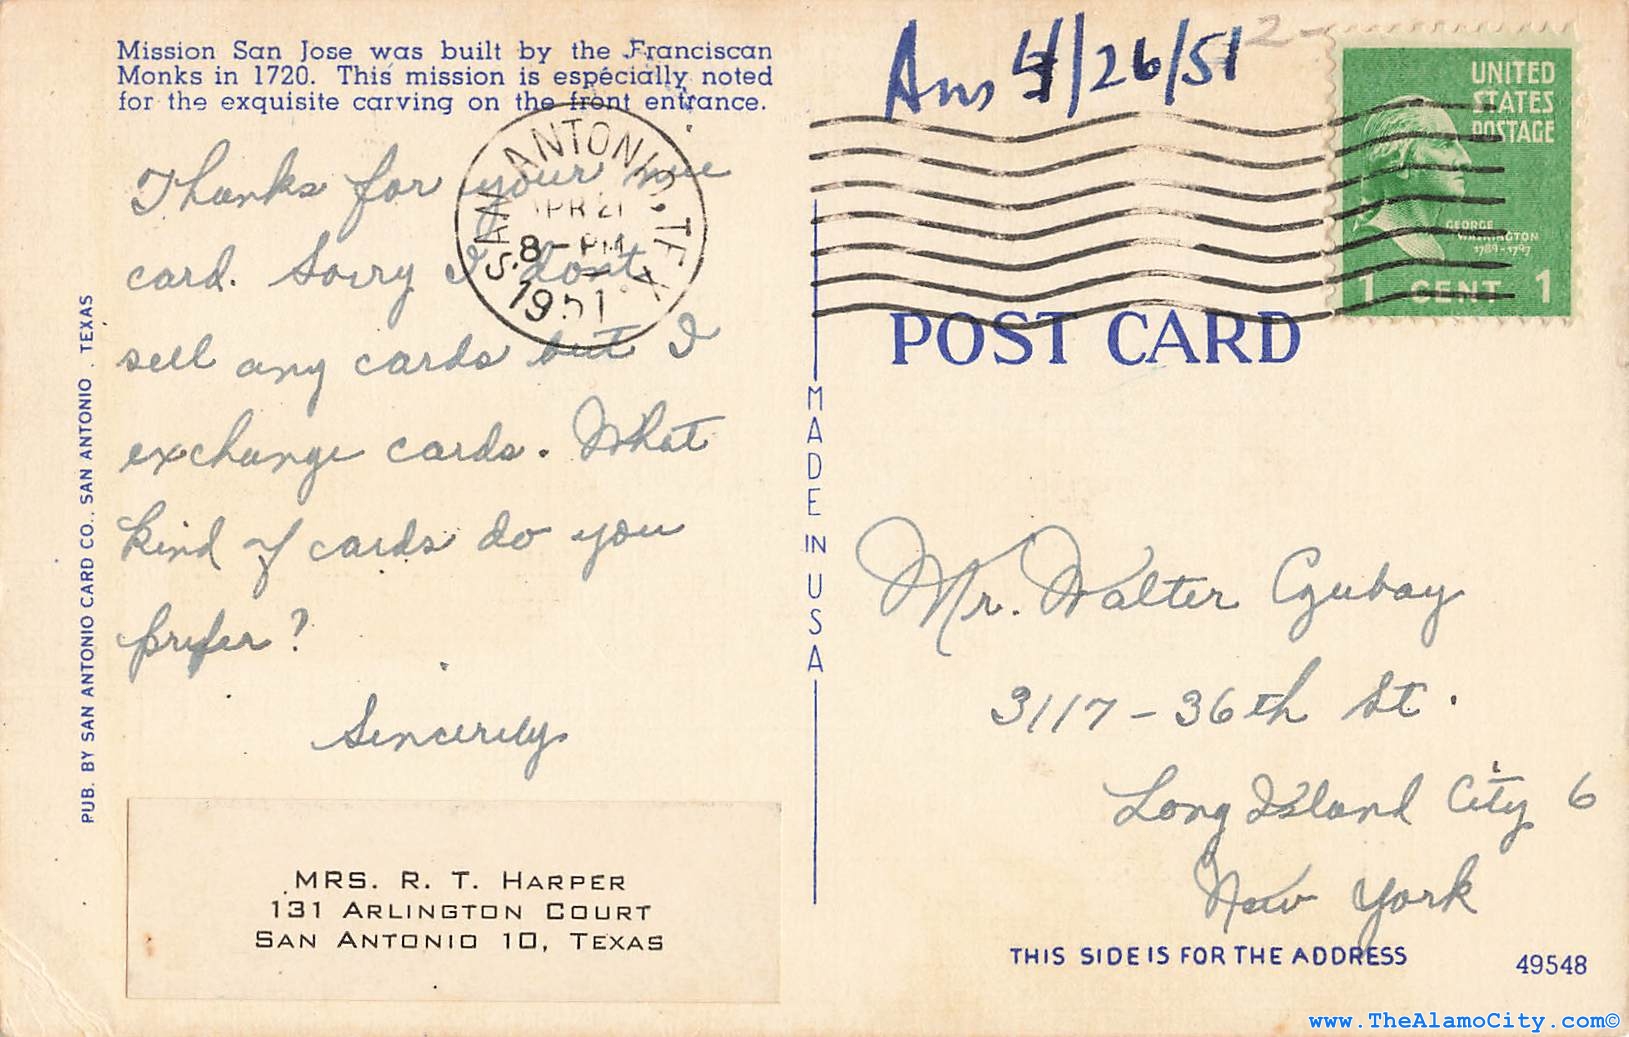 Mission San Jose was built by the Franciscan
Monks in 1720. This mission is especially noted
for the exquisite carving on the front entrance.
Thanks for your nice
card. Sorry I don't
sell any cards but I
exchange cards. What
kind of cards do you
prefer?
Sincerely
MRS. R. T. HARPER
131 ARLINGTON COURT
SAN ANTONIO 10, TEXAS
PUB. BY SAN ANTONIO CARD CO., SAN ANTONIO, TEXAS
SAN ANTONIO, TEX.
APR 21
8 - PM
1951
MADE IN USA
Ans 4/26/51
2-
UNITED
STATES
POSTAGE
GEORGE
WASHINGTON
1789-1797
1 CENT 1
POST CARD
Mr. Walter Czubay
3117-36th St.
Long Island City 6
New York
THIS SIDE IS FOR THE ADDRESS
49548
www.TheAlamoCity.com©